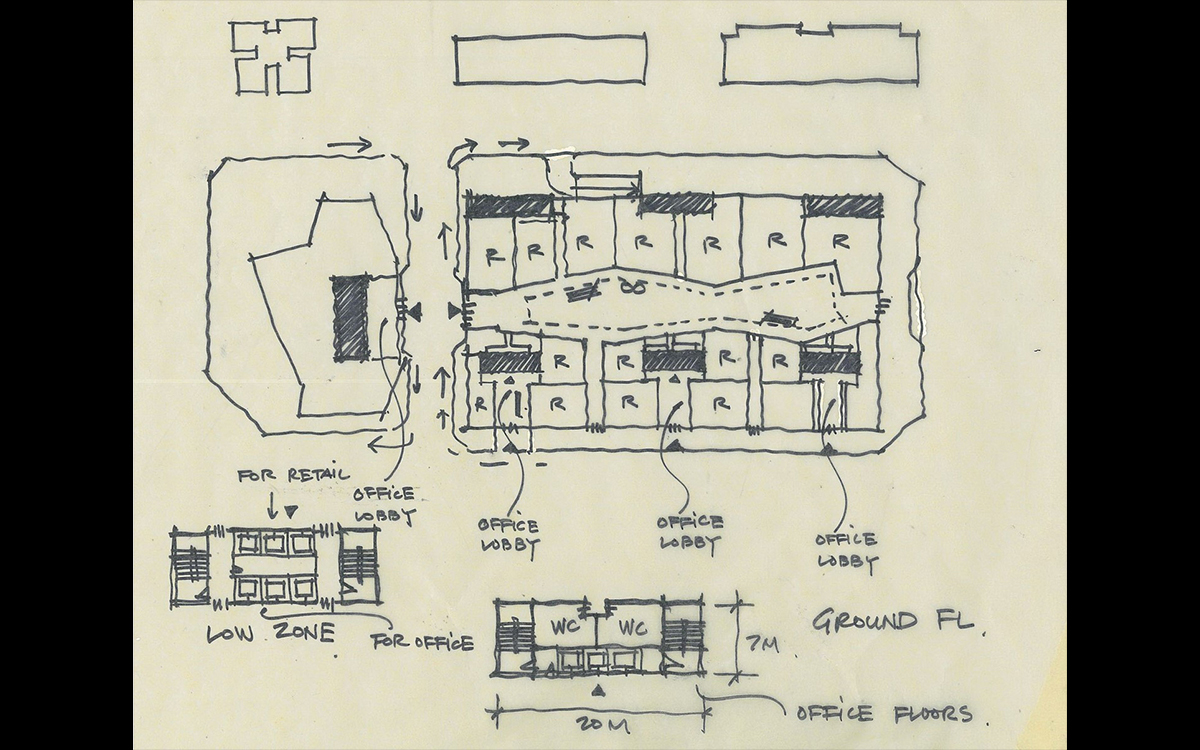 R R R R R R R
R R R R
R R R R
FOR RETAIL
OFFICE
LOBBY
OFFICE
LOBBY
OFFICE
LOBBY
OFFICE
LOBBY
LOW ZONE
FOR OFFICE
WC WC
GROUND FL.
7M
20M
OFFICE FLOORS.